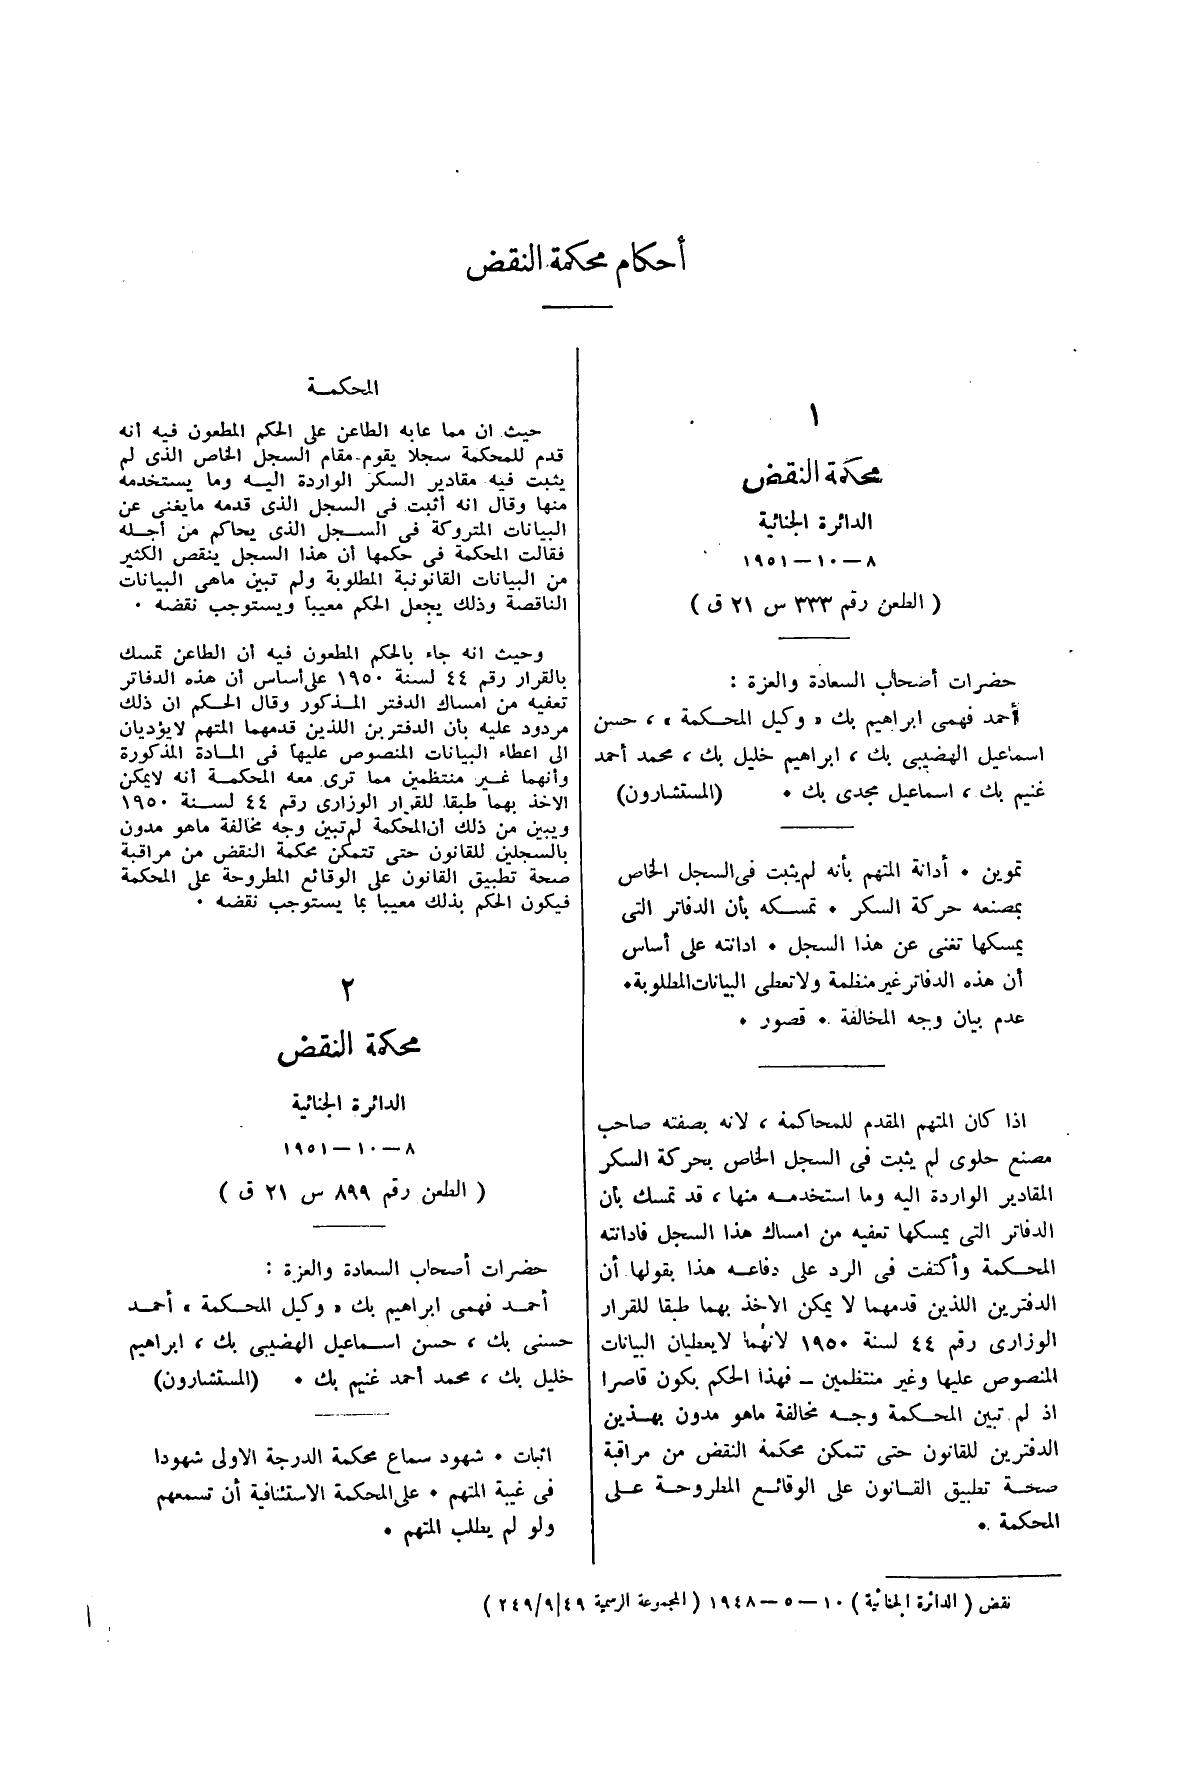 أحكام محكمة النقض
١
محكمة النقض
الدائرة الجنائية
٨ — ١٠ — ١٩٥١
( الطعن رقم ٣٣٣ س ٢١ ق )
حضرات أصحاب السعادة والعزة :
أحمد فهمى ابراهيم بك « وكيل المحكمة » ، حسن
اسماعيل الهضيبى بك ، ابراهيم خليل بك ، محمد أحمد
غنيم بك ، اسماعيل مجدى بك . (المستشارون)
تموين . أدانة المتهم بأنه لم يثبت فى السجل الخاص
بمصنعه حركة السكر . تمسكه بأن الدفاتر التى
يمسكها تغنى عن هذا السجل . ادانته على أساس
أن هذه الدفاتر غير منظمة ولا تعطى البيانات المطلوبة .
عدم بيان وجه المخالفة . قصور .
اذا كان المتهم المقدم للمحاكمة ، لانه بصفته صاحب
مصنع حلوى لم يثبت فى السجل الخاص بحركة السكر
المقادير الواردة اليه وما استخدمه منها ، قد تمسك بأن
الدفاتر التى يمسكها تعفيه من امساك هذا السجل فادانته
المحكمة وأكتفت فى الرد على دفاعه هذا بقولها أن
الدفترين اللذين قدمهما لا يمكن الاخذ بهما طبقا للقرار
الوزارى رقم ٤٤ لسنة ١٩٥٠ لانهما لا يعطيان البيانات
المنصوص عليها وغير منتظمين — فهذا الحكم يكون قاصرا
اذ لم تبين المحكمة وجه مخالفة ماهو مدون بهذين
الدفترين للقانون حتى تتمكن محكمة النقض من مراقبة
صحة تطبيق القانون على الوقائع المطروحة على
المحكمة .
المحكمة
حيث ان مما عابه الطاعن على الحكم المطعون فيه أنه
قدم للمحكمة سجلا يقوم مقام السجل الخاص الذى لم
يثبت فيه مقادير السكر الواردة اليه وما يستخدمه
منها وقال انه أثبت فى السجل الذى قدمه مايغنى عن
البيانات المتروكة فى السجل الذى يحاكم من أجله
فقالت المحكمة فى حكمها أن هذا السجل ينقص الكثير
من البيانات القانونية المطلوبة ولم تبين ماهى البيانات
الناقصة وذلك يجعل الحكم معيبا ويستوجب نقضه .
وحيث انه جاء بالحكم المطعون فيه أن الطاعن تمسك
بالقرار رقم ٤٤ لسنة ١٩٥٠ على أساس أن هذه الدفاتر
تعفيه من امساك الدفتر المذكور وقال الحكم ان ذلك
مردود عليه بأن الدفترين اللذين قدمهما المتهم لايؤديان
الى اعطاء البيانات المنصوص عليها فى المادة المذكورة
وأنهما غير منتظمين مما ترى معه المحكمة أنه لايمكن
الاخذ بهما طبقا للقرار الوزارى رقم ٤٤ لسنة ١٩٥٠
ويبين من ذلك أن المحكمة لم تبين وجه مخالفة ماهو مدون
بالسجلين للقانون حتى تتمكن محكمة النقض من مراقبة
صحة تطبيق القانون على الوقائع المطروحة على المحكمة
فيكون الحكم بذلك معيبا بما يستوجب نقضه .
٢
محكمة النقض
الدائرة الجنائية
٨ — ١٠ — ١٩٥١
( الطعن رقم ٨٩٩ س ٢١ ق )
حضرات أصحاب السعادة والعزة :
أحمد فهمى ابراهيم بك « وكيل المحكمة » أحمد
حسنى بك ، حسن اسماعيل الهضيبى بك ، ابراهيم
خليل بك ، محمد أحمد غنيم بك . (المستشارون)
اثبات . شهود سماع محكمة الدرجة الاولى شهودا
فى غيبة المتهم . على المحكمة الاستئنافية أن تسمعهم
ولو لم يطلب المتهم .
نقض ( الدائرة الجنائية ) ١٠ — ٥ — ١٩٤٨ ( المجموعة الرسمية ٢٤٩/٩/٤٩ )
١